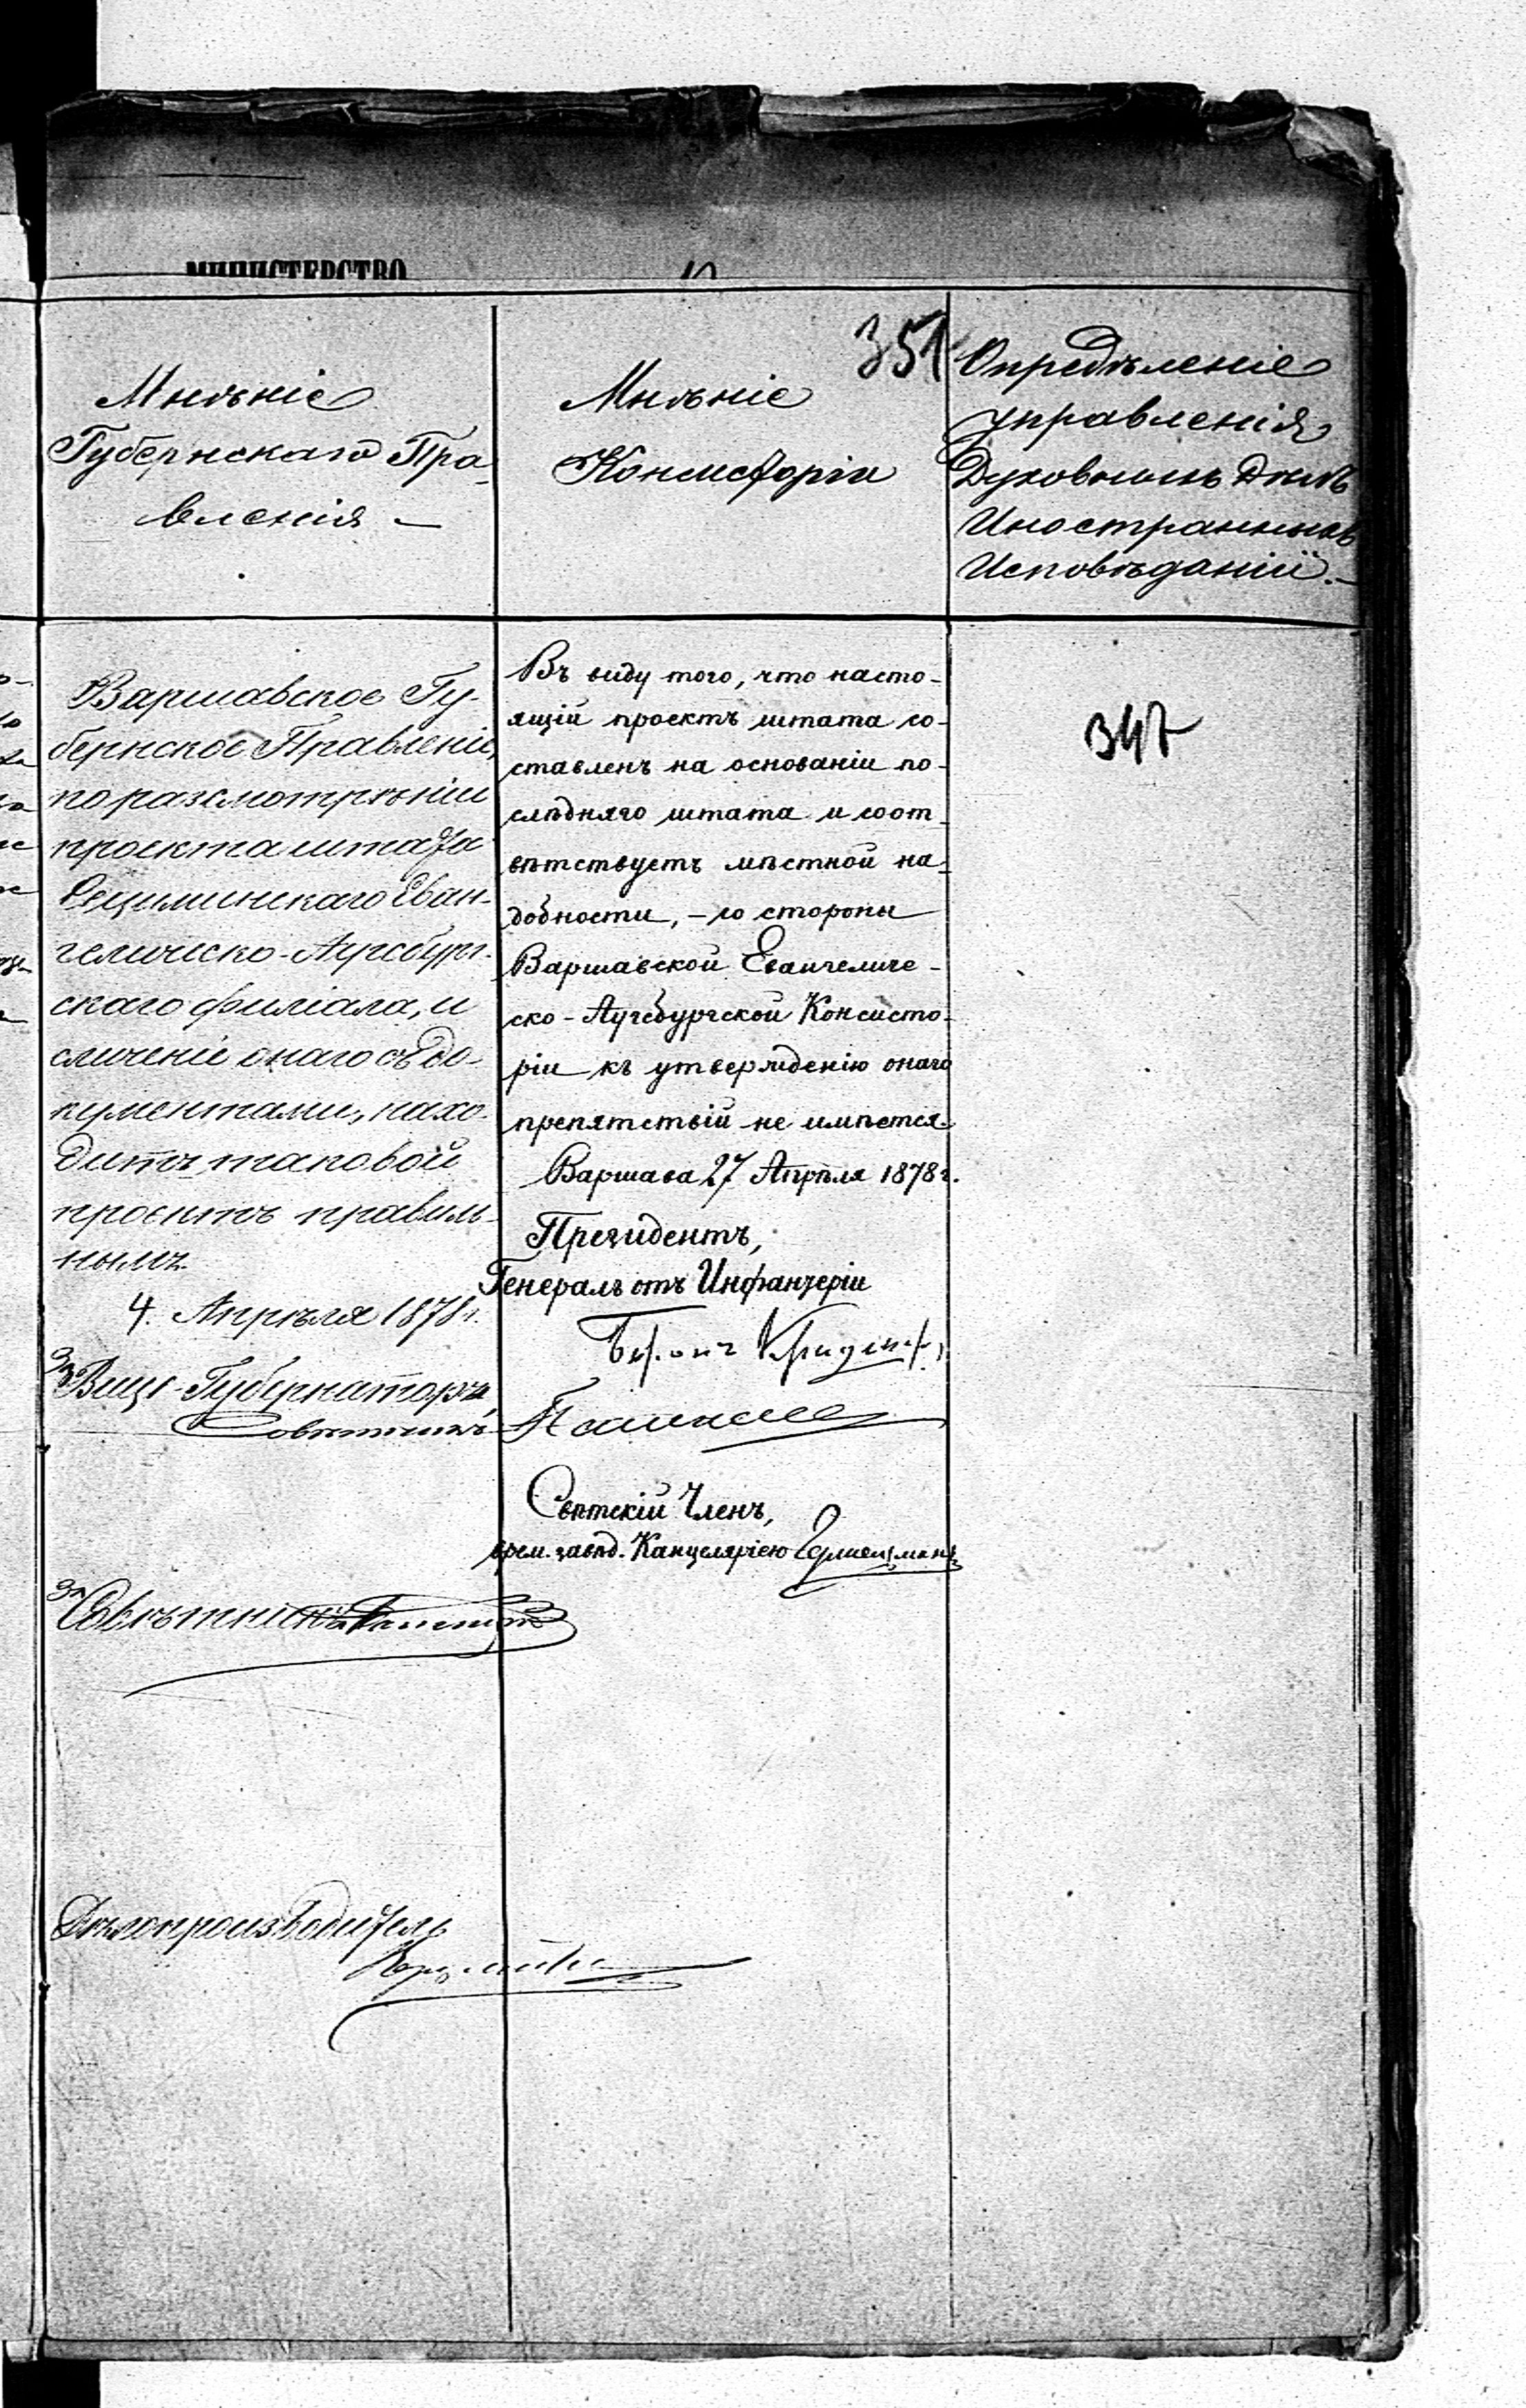 МИНИСТЕРСТВО
351
Мнѣніе
Губернскаго Пра-
вленія —
Мнѣніе
Консисторіи
Опредѣленіе
управленія
Духовныхъ Дѣлъ
Иностранныхъ
Исповѣданій. —
Варшавское Гу-
бернское Правленіе,
по разсмотрѣніи
проекта штата
Еван-
гелическо-Аугсбург-
скаго филіала, и
сличеніе онаго съ до-
кументами, нахо-
дитъ таковой
проектъ правиль-
нымъ.
4. Апрѣля 1878 г.
За Вице-Губернатора,
Совѣтникъ
За Совѣтника
Дѣлопроизводитель
Въ виду того, что насто-
ящій проектъ штата со-
ставленъ на основаніи по-
слѣдняго штата и соот-
вѣтствуетъ мѣстной на-
добности, – со стороны
Варшавской Евангеличе-
ско-Аугсбургской Консисто-
ріи къ утвержденію онаго
препятствій не имѣется.
Варшава 27 Апрѣля 1878 г.
Президентъ,
Генералъ отъ Инфантеріи
Баронъ Криденеръ
Свѣтскій Членъ,
врем. завѣд. Канцеляріею
347